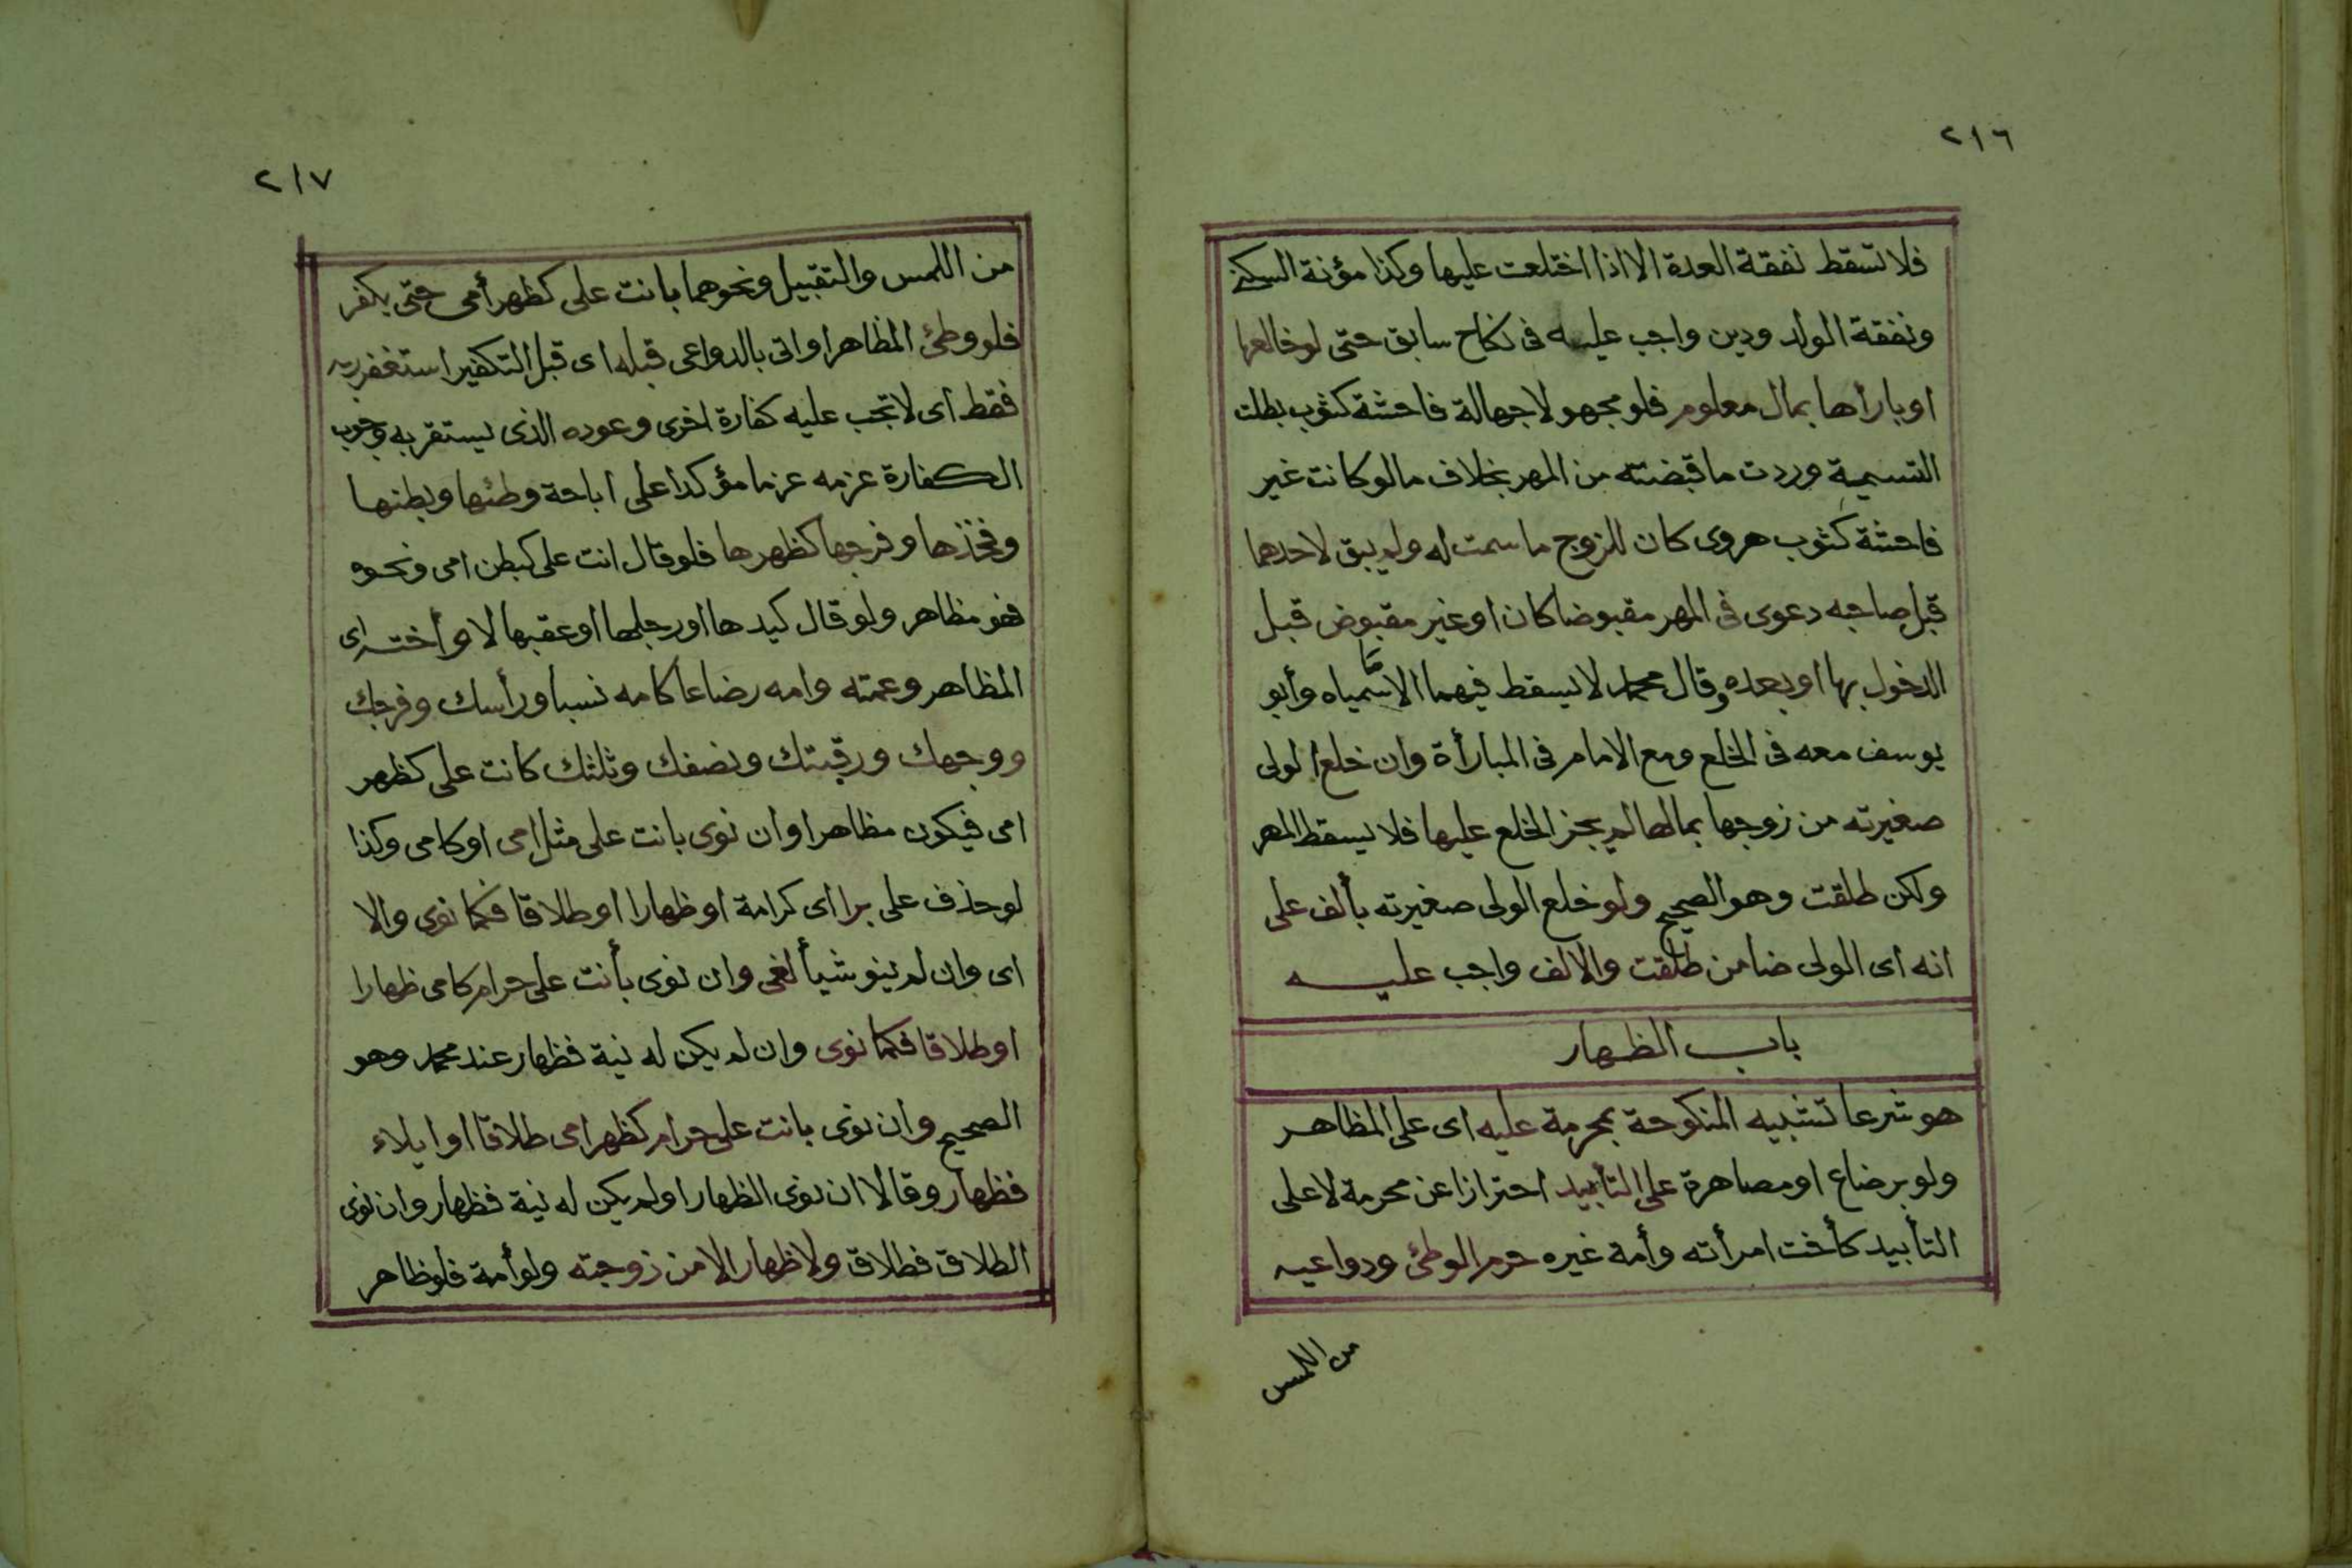 ٢١٦
فلا تسقط نفقة العدة الا اذا اختلعت عليها وكذا مؤنة السكنى
ونفقة الولد ودين واجب عليه فى نكاح سابق حتى لو خالعها
او بارأها بمال معلوم فلو مجهولا جهالة فاحشة كثوب بطلت
التسمية وردت ما قبضته من المهر بخلاف ما لو كانت غير
فاحشة كثوب هروى كان للزوج ما سمت له ولم يبق لاحدهما
قبل صاحبه دعوى فى المهر مقبوضا كان او غير مقبوض قبل
الدخول بها او بعده وقال محمد لا يسقط فيهما الا ما سمياه وأبو
يوسف معه فى الخلع ومع الامام فى المبارأة وان خلع الولى
صغيرته من زوجها بمالها لم يجز الخلع عليها فلا يسقط المهر
ولكن طلقت وهو الصحيح ولو خلع الولى صغيرته بألف على
انه اى الولى ضامن طلقت والالف واجب عليه
باب الظهار
هو شرعا تشبيه المنكوحة بمحرمة عليه اى على المظاهر
ولو برضاع او مصاهرة على التأبيد احترازا عن محرمة لا على
التأبيد كأخت امرأته وأمة غيره حرم الوطئ ودواعيه
من اللمس
٢١٧
من اللمس والتقبيل ونحوهما بانت على كظهر أمى حتى يكفر
فلو وطئ المظاهر او اتى بالدواعى قبله اى قبل التكفير استغفر ربه
فقط اى لا تجب عليه كفارة اخرى وعوده الذى يستقر به وجوب
الكفارة عزمه عزما مؤكدا على اباحة وطئها وبطنها
وفخذها وفرجها كظهرها فلو قال انت على كبطن امى ونحوه
فهو مظاهر ولو قال كيدها او رجلها او عقبها لا وأخته اى
المظاهر وعمته وامه رضاعا كامه نسبا ورأسك وفرجك
ووجهك ورقبتك ونصفك وثلثك كانت على كظهر
امى فيكون مظاهرا وان نوى بانت على مثل امى او كامى وكذا
لو حذف على برا اى كرامة او ظهارا او طلاقا فكما نوى والا
اى وان لم ينو شيأ لغى وان نوى بأنت على حرام كامى ظهارا
او طلاقا فكما نوى وان لم يكن له نية فظهار عند محمد وهو
الصحيح وان نوى بانت على حرام كظهر امى طلاقا او ايلاء
فظهار وقالا ان نوى الظهار او لم يكن له نية فظهار وان نوى
الطلاق فطلاق ولا ظهار الا من زوجته ولو أمة فلو ظاهر